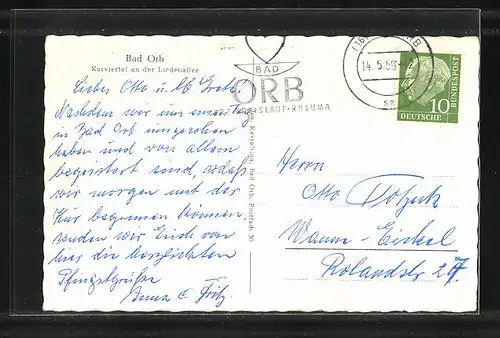 Bad Orb
Kurviertel an der Lindenallee
Lieber Otto u. lb. Grete.
Nachdem wir uns einen Tag
in Bad Orb umgesehen
haben und von allem
begeistert sind, sodaß
wir morgen mit der
Kur beginnen können,
senden wir Euch von
hier die herzlichsten
Pfingstgrüße
Anna &  Fritz
BAD
ORB
HERZ-KREISLAUF-RHEUMA
14.5.59
10
DEUTSCHE
BUNDESPOST
Bad Orb, Postfach 30
Herrn
Otto
Wanne-Eickel
Rolandstr 27